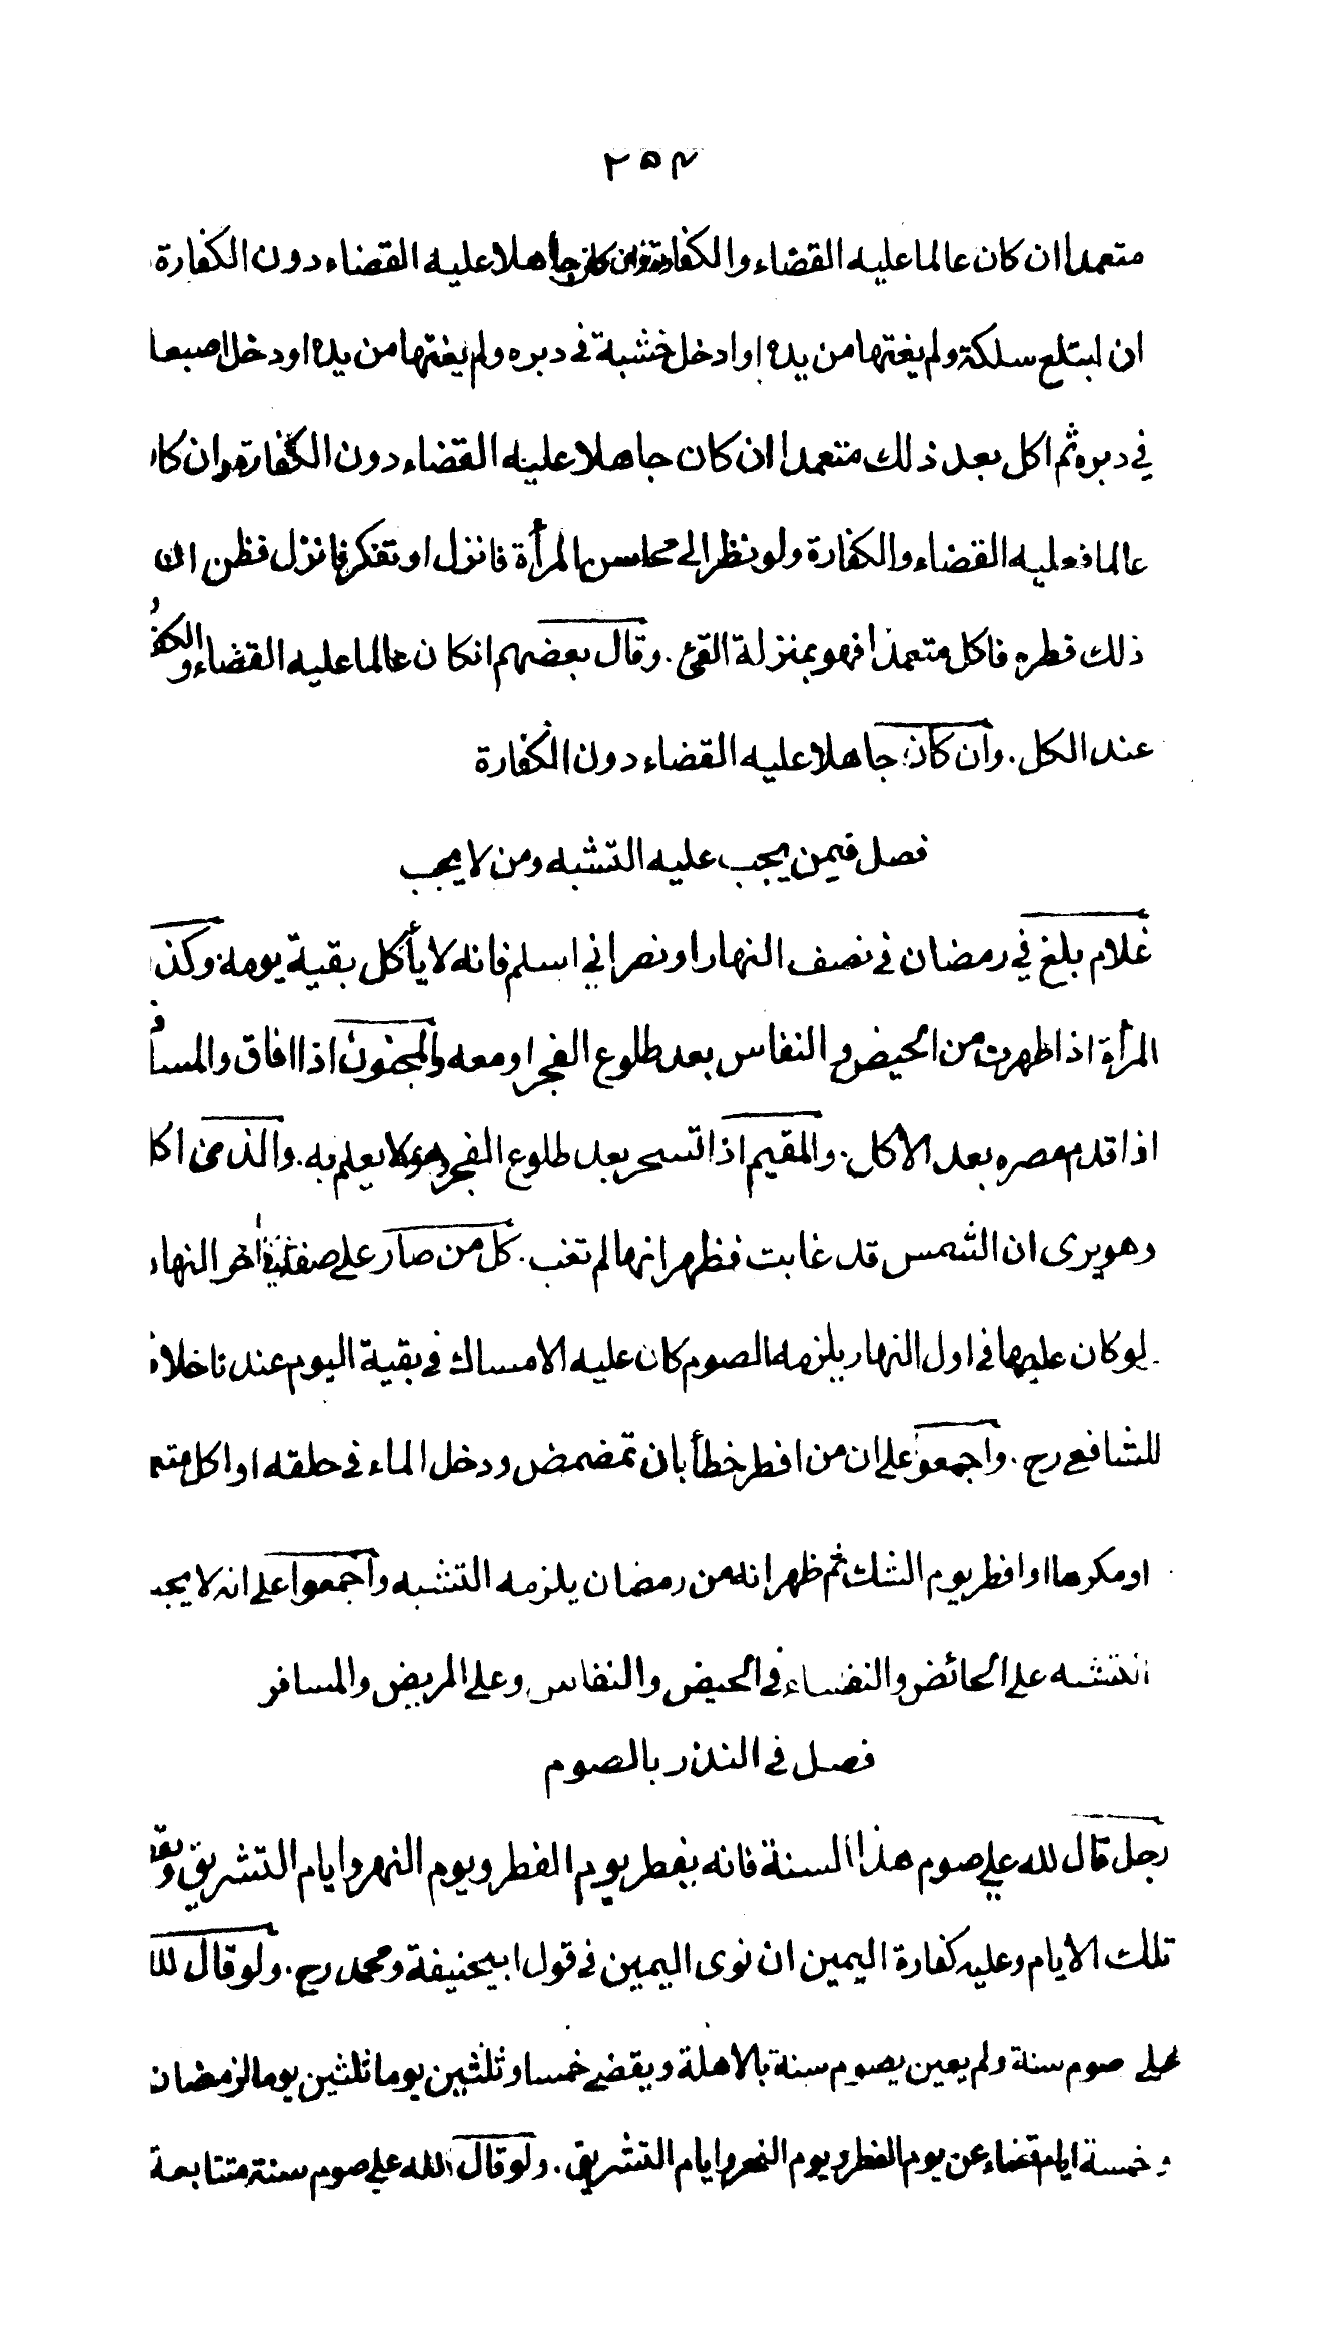 ٢٥٤
متعمدا ان كان عالما عليه القضاء والكفارة وان كان جاهلا عليه القضاء دون الكفارة
ان ابتلع سلكة ولم يغتها من يده او ادخل خشبة في دبره ولم يغتها من يده او دخل اصبعا
في دبره ثم اكل بعد ذلك متعمدا ان كان جاهلا عليه القضاء دون الكفارة وان كان
عالما فعليه القضاء والكفارة ولو نظر الى محاسن المرأة فانزل او تفكر فانزل فظن ان
ذلك فطره فاكل متعمدا فهو بمنزلة القئ . وقال بعضهم انكان عالما عليه القضاء والكف
عند الكل . وان كان جاهلا عليه القضاء دون الكفارة
فصل فيمن يجب عليه التشبه ومن لا يجب
غلام بلغ في رمضان في نصف النهار او نصراني اسلم فانه لا يأكل بقية يومه وكذا
المرأة اذا طهرت من الحيض و النفاس بعد طلوع الفجر او معه والمجنون اذا افاق والمساف
اذا قدم مصره بعد الاكل . والمقيم اذا تسحر بعد طلوع الفجر وهو لا يعلم به . والذى اكل
وهو يرى ان الشمس قد غابت فظهر انها لم تغب . كل من صار على صفة في اخر النهار
لو كان عليها في اول النهار يلزمه الصوم كان عليه الامساك في بقية اليوم عندنا خلافا
للشافعى رح . واجمعوا على ان من افطر خطأ بان تمضمض ودخل الماء في حلقه او اكل متعم
او مكرها او افطر يوم الشك ثم ظهر انه من رمضان يلزمه التشبه واجمعوا على انه لا يجب
التشبه على الحائض والنفساء في الحيض والنفاس وعلى المريض والمسافر
فصل في النذر بالصوم
رجل قال لله علي صوم هذا السنة فانه يفطر يوم الفطر ويوم النحر وايام التشريق ويقض
تلك الايام وعليه كفارة اليمين ان نوى اليمين في قول ابيحنيفة ومحمد رح . ولو قال لله
على صوم سنة ولم يعين يصوم سنة بالاهلة ويقضي خمسا وثلثين يوما ثلثين يوما لرمضان
وخمسة ايام قضاء عن يوم الفطر ويوم النحر وايام التشريق . ولو قال لله على صوم سنة متتابعة